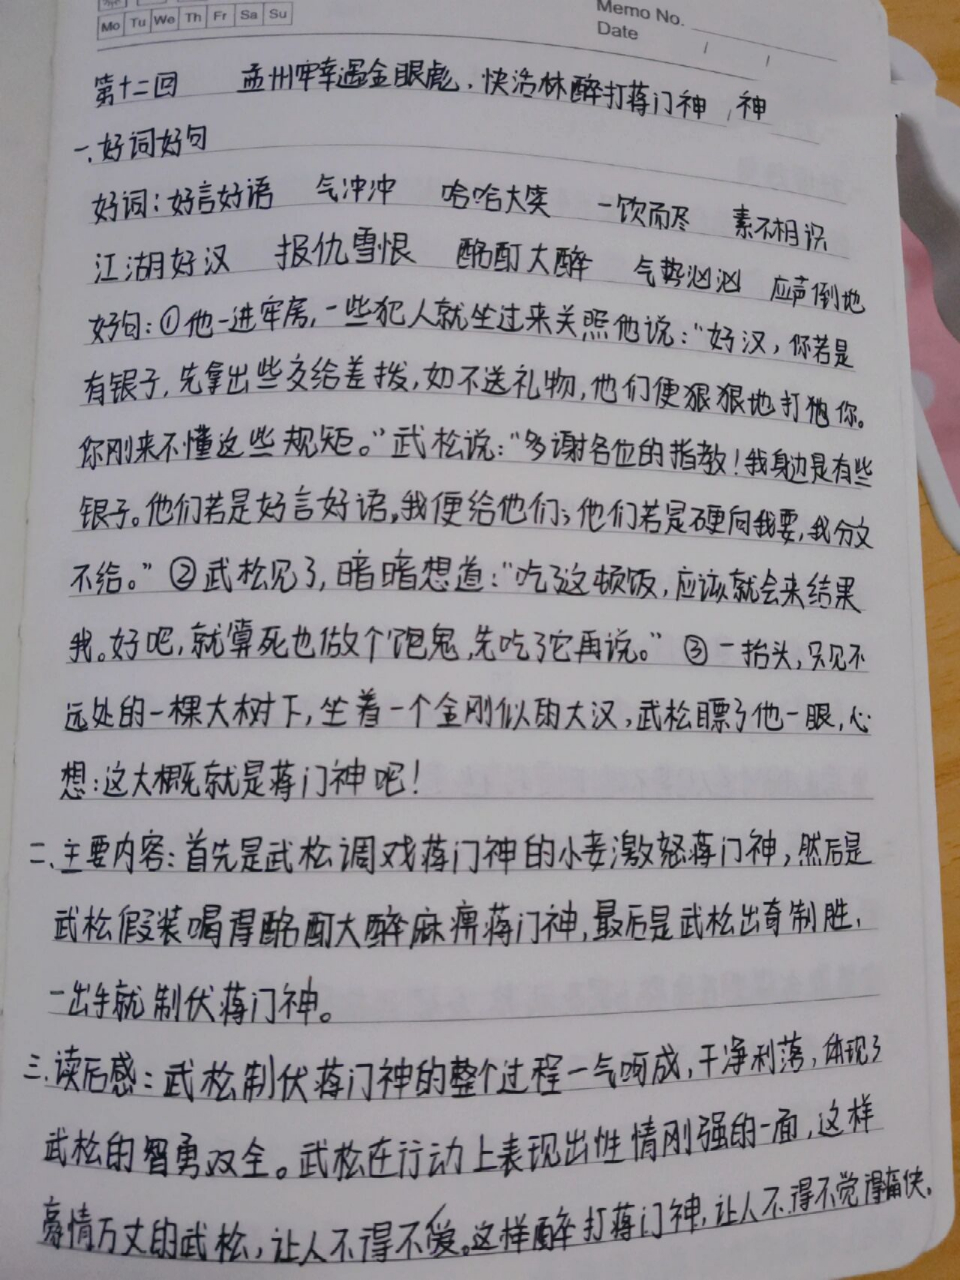 Mo Tu We Th Fr Sa Su
Memo No.
Date / /
第十二回 孟州牢幸遇金眼彪，快活林醉打蒋门神，神
一、好词好句
好词：好言好语 气冲冲 哈哈大笑 一饮而尽 素不相识
江湖好汉 报仇雪恨 酩酊大醉 气势汹汹 应声倒地
好句：①他一进牢房，一些犯人就坐过来关照他说：“好汉，你若是
有银子，先拿出些交给差拨，如不送礼物，他们便狠狠地打你。
你刚来不懂这些规矩。”武松说：“多谢各位的指教！我身边是有些
银子。他们若是好言好语，我便给他们；他们若是硬向我要，我分文
不给。”②武松见了，暗暗想道：“吃了这顿饭，应该就会来结果
我。好吧，就算死也做个饱鬼，先吃了它再说。”③一抬头，只见不
远处的一棵大树下，坐着一个金刚似的大汉，武松瞟了他一眼，心
想：这大概就是蒋门神吧！
二、主要内容：首先是武松调戏蒋门神的小妾激怒蒋门神，然后是
武松假装喝得酩酊大醉麻痹蒋门神，最后是武松出奇制胜，
一出手就制伏蒋门神。
三、读后感：武松制伏蒋门神的整个过程一气呵成，干净利落，体现了
武松的智勇双全。武松在行动上表现出性情刚强的一面，这样
豪情万丈的武松，让人不得不爱。这样醉打蒋门神，让人不得不觉得痛快。